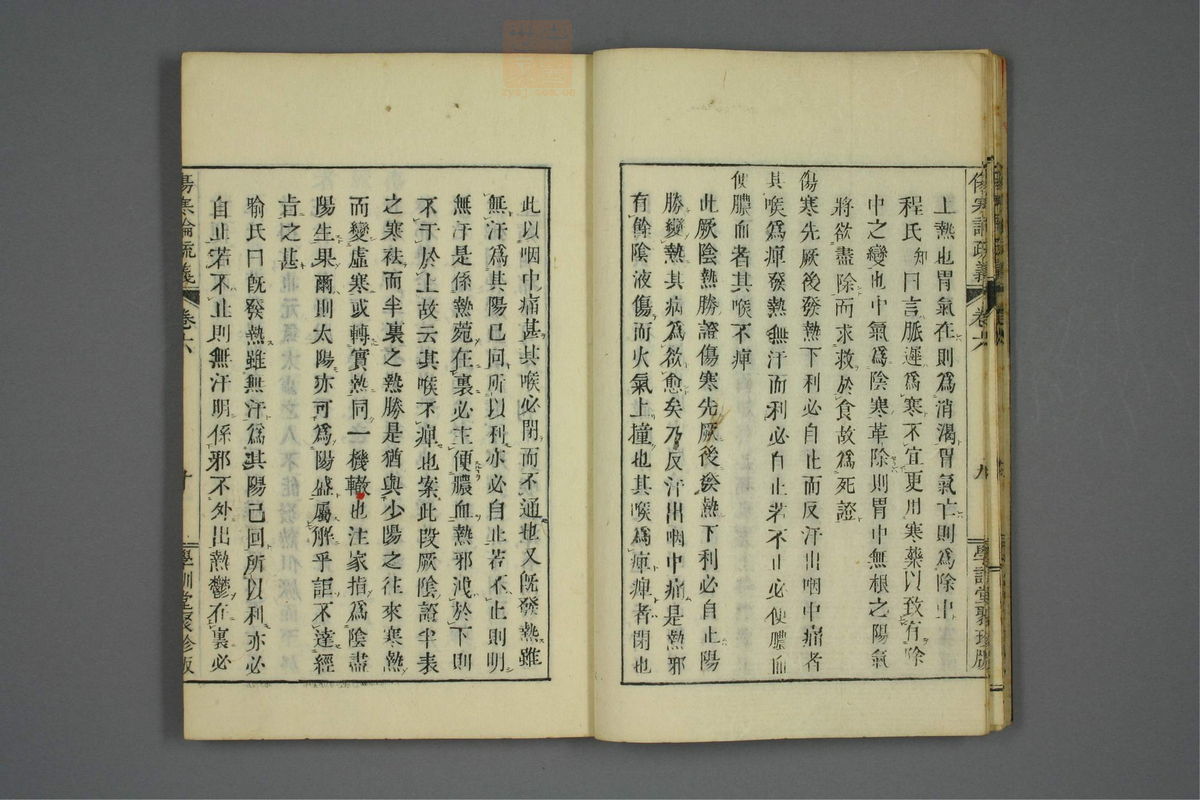 上熱也胃氣在則爲消渴胃氣亡則爲除中
程氏知曰言脈遲爲寒不宜更用寒藥以致有除
中之變也中氣爲陰寒革除則胃中無根之陽氣
將欲盡除而求救於食故爲死證
傷寒先厥後發熱下利必自止而反汗出咽中痛者
其喉爲痺發熱無汗而利必自止若不止必便膿血
便膿血者其喉不痺
此厥陰熱勝證傷寒先厥後發熱下利必自止陽
勝變熱其病爲欲愈矣乃反汗出咽中痛是熱邪
有餘陰液傷而火氣上撞也其喉爲痺痺者閉也
傷寒論疏義 卷六 九 學訓堂聚珍版
此以咽中痛甚其喉必閉而不通也又既發熱雖
無汗爲其陽已回所以利亦必自止若不止則明
無汗是係熱菀在裏必主便膿血熱邪洩於下則
不干於上故云其喉不痺也案此段厥陰證半表
之寒袪而半裏之熱勝是猶與少陽之往來寒熱
而變虛寒或轉實熱同一機轍也注家指爲陰盡
陽生果爾則太陽亦可爲陽盛屬解乎詎不達經
旨之甚
喻氏曰既發熱雖無汗爲其陽已回所以利亦必
自止若不止則無汗明係邪不外出熱鬱在裏必
傷寒論疏義 卷六 十 學訓堂聚珍版